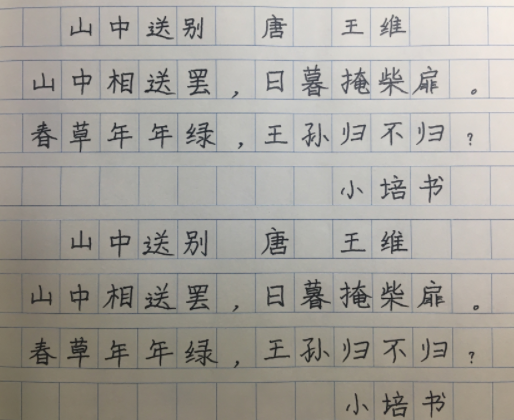 山中送别 唐 王维
山中相送罢，日暮掩柴扉。
春草年年绿，王孙归不归？
小培书
山中送别 唐 王维
山中相送罢，日暮掩柴扉。
春草年年绿，王孙归不归？
小培书